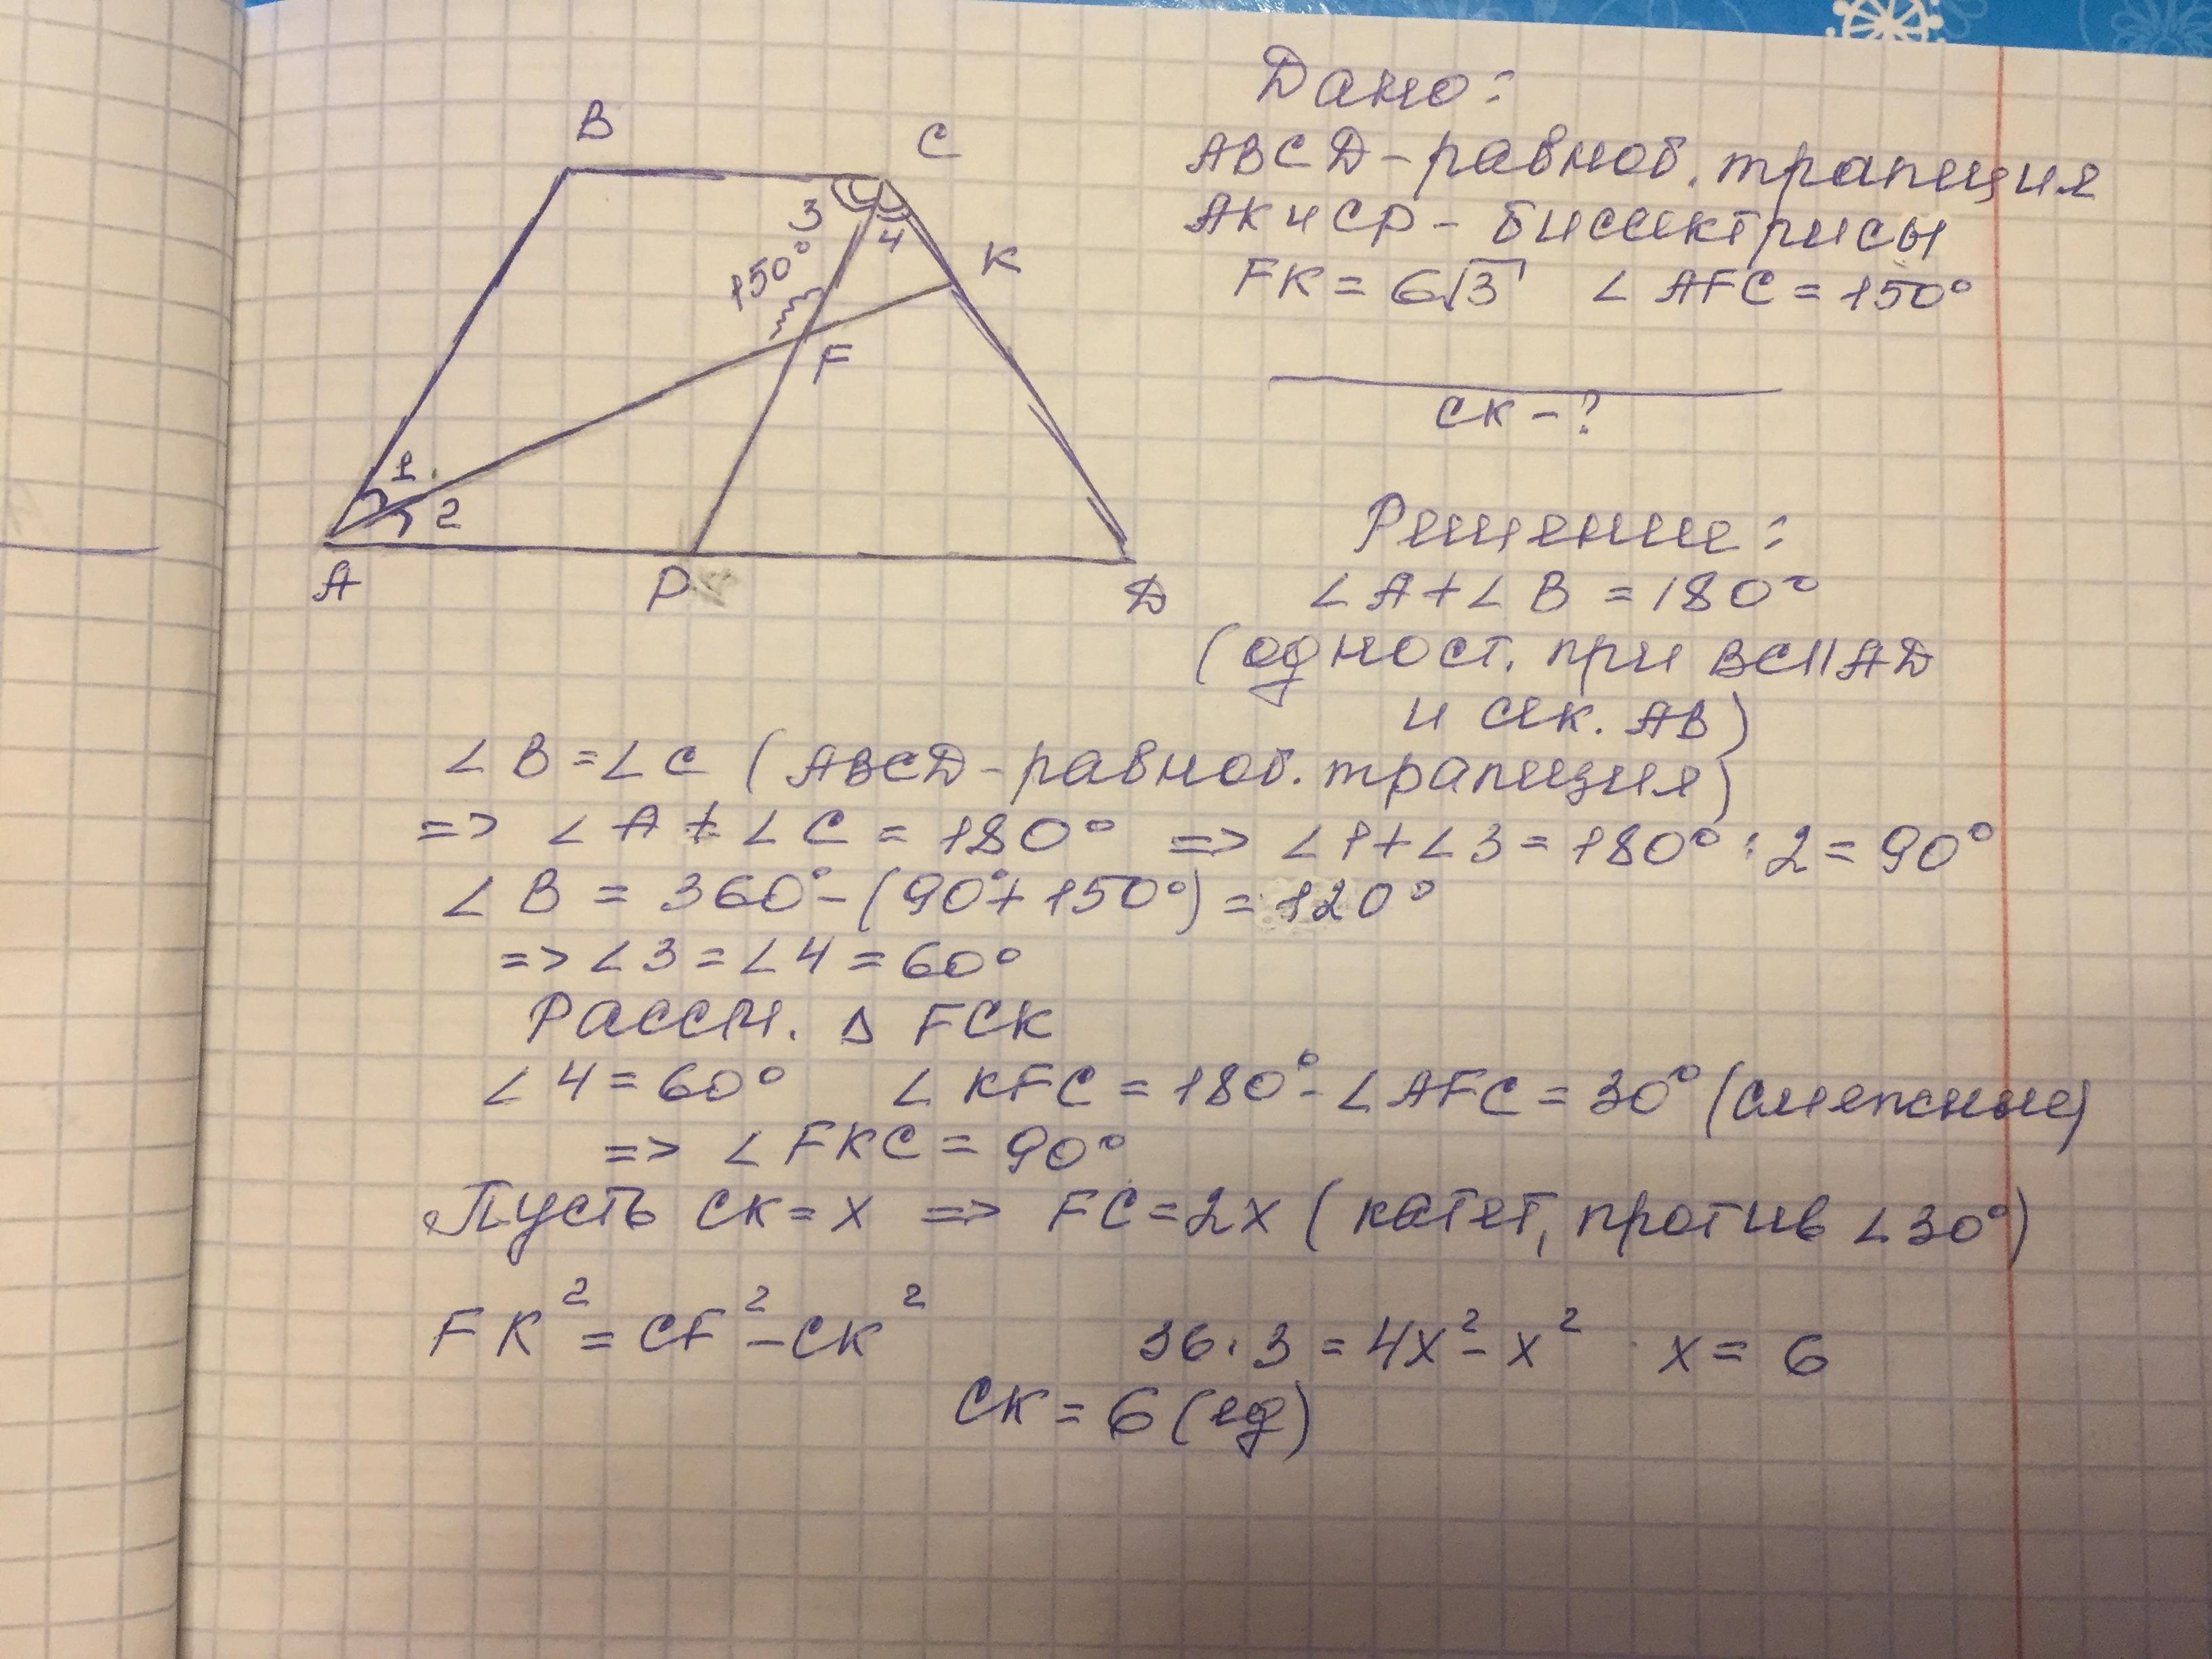 B
C
3
4
150°
K
F
1
2
A
P
D
Дано:
ABCD - равноб. трапеция
AK и CP - биссектрисы
FK = 6√3 ∠ AFC = 150°
CK - ?
Решение:
∠ A + ∠ B = 180°
(одност. при BC || AD
и сек. AB)
∠ B = ∠ C (ABCD - равноб. трапеция)
=> ∠ A + ∠ C = 180° => ∠ 1 + ∠ 3 = 180° : 2 = 90°
∠ B = 360° - (90° + 150°) = 120°
=> ∠ 3 = ∠ 4 = 60°
Рассм. Δ FCK
∠ 4 = 60° ∠ KFC = 180° - ∠ AFC = 30° (смежные)
=> ∠ FKC = 90°
Пусть CK = x => FC = 2x (катет, против ∠ 30°)
FK² = CF² - CK² 36 · 3 = 4x² - x² x = 6
CK = 6 (ед)